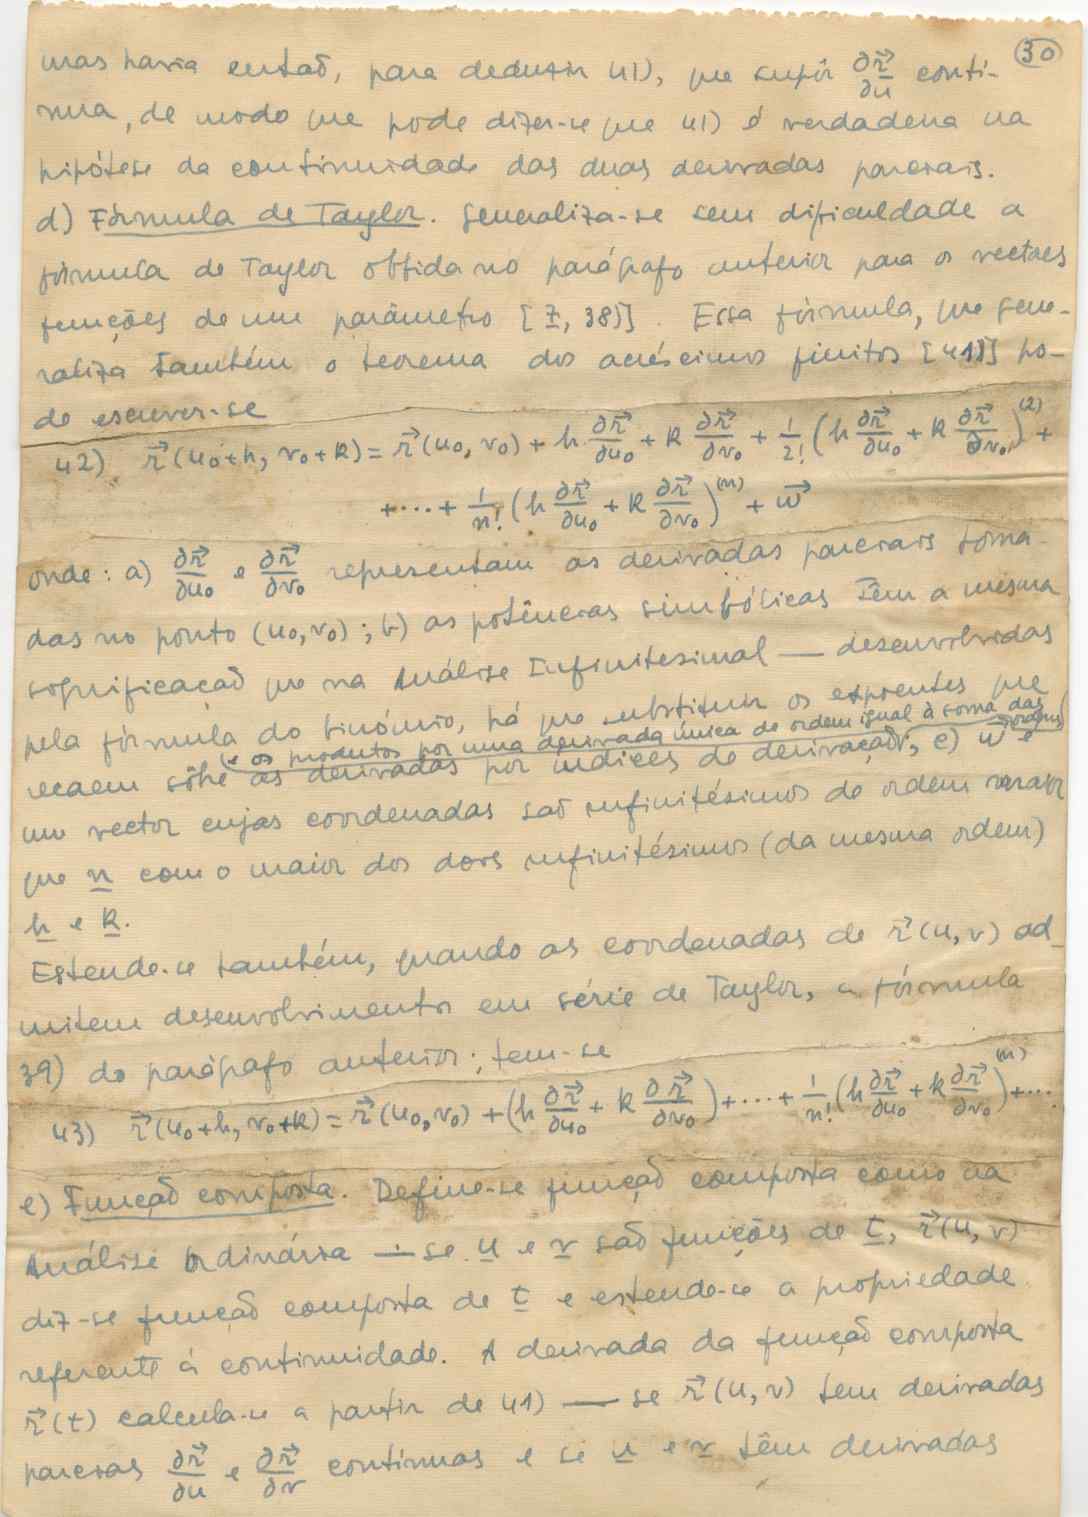 30
mas havia então, para deduzir 41), que supôr ∂r⃗/∂u contí-
nua, de modo que pode dizer-se que 41) é verdadeira na
hipótese da continuidade das duas derivadas parciais.
d) Fórmula de Taylor. Generaliza-se sem dificuldade a
fórmula de Taylor obtida no parágrafo anterior para os vectores
funções de um parâmetro [7, 38)]. Essa fórmula, que gene-
raliza também o teorema dos acréscimos finitos [41)] po-
de escrever-se
42) r⃗(u₀+h, v₀+k) = r⃗(u₀, v₀) + h ∂r⃗/∂u₀ + k ∂r⃗/∂v₀ + 1/2! (h ∂r⃗/∂u₀ + k ∂r⃗/∂v₀)⁽²⁾ +
+ ··· + 1/n! (h ∂r⃗/∂u₀ + k ∂r⃗/∂v₀)⁽ⁿ⁾ + w⃗
onde: a) ∂r⃗/∂u₀ e ∂r⃗/∂v₀ representam as derivadas parciais toma-
das no ponto (u₀, v₀); b) as potências simbólicas têm a mesma
significação que na Análise Infinitesimal — desenvolvidas
pela fórmula do binómio, há que substituir os expoentes que
(e os produtos por uma derivada única de ordem igual à soma das ordens)
recaem sôbre as derivadas por índices de derivação; c) w⃗ é
um vector cujas coordenadas são infinitésimos de ordem maior
que n com o maior dos dois infinitésimos (da mesma ordem)
h e k.
Estende-se também, quando as coordenadas de r⃗(u, v) ad-
mitem desenvolvimentos em série de Taylor, a fórmula
39) do parágrafo anterior; tem-se
43) r⃗(u₀+h, v₀+k) = r⃗(u₀, v₀) + (h ∂r⃗/∂u₀ + k ∂r⃗/∂v₀) + ··· + 1/n! (h ∂r⃗/∂u₀ + k ∂r⃗/∂v₀)⁽ⁿ⁾ + ···
e) Função composta. Define-se função composta como na
Análise Ordinária — se u e v são funções de t, r⃗(u, v)
diz-se função composta de t e estende-se a propriedade
referente à continuidade. A derivada da função composta
r⃗(t) calcula-se a partir de 41) — se r⃗(u, v) tem derivadas
parciais ∂r⃗/∂u e ∂r⃗/∂v contínuas e se u e v têm derivadas